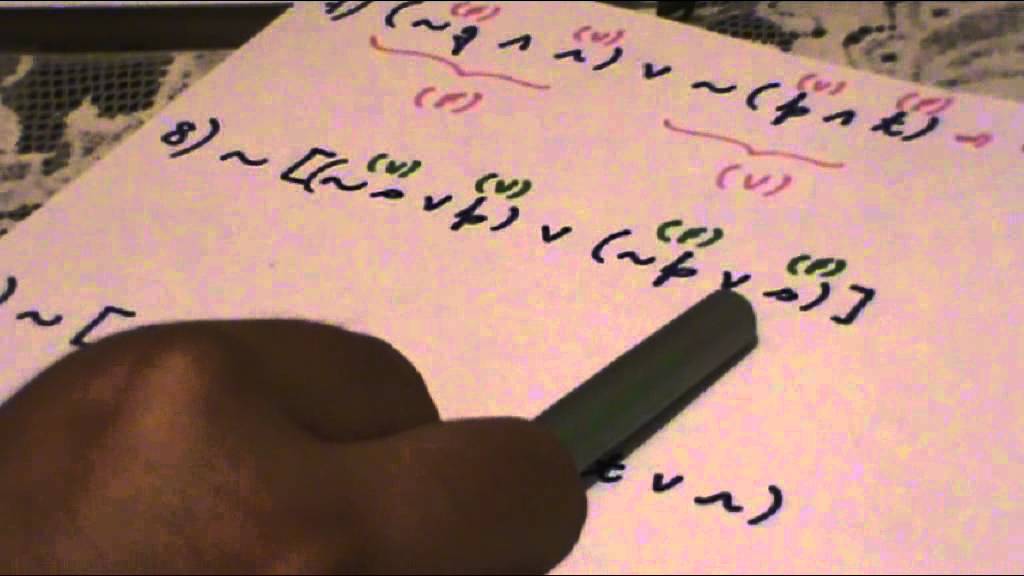 (~q ∧ r) ∨ ~(p ∧ t)
(F) (V) (V) (F)
(F) (V)
8) ~[(~s ∨ p) ∨ (~p ∨ s)]
(V) (V) (F) (F)
) ~[
t ∨ r)